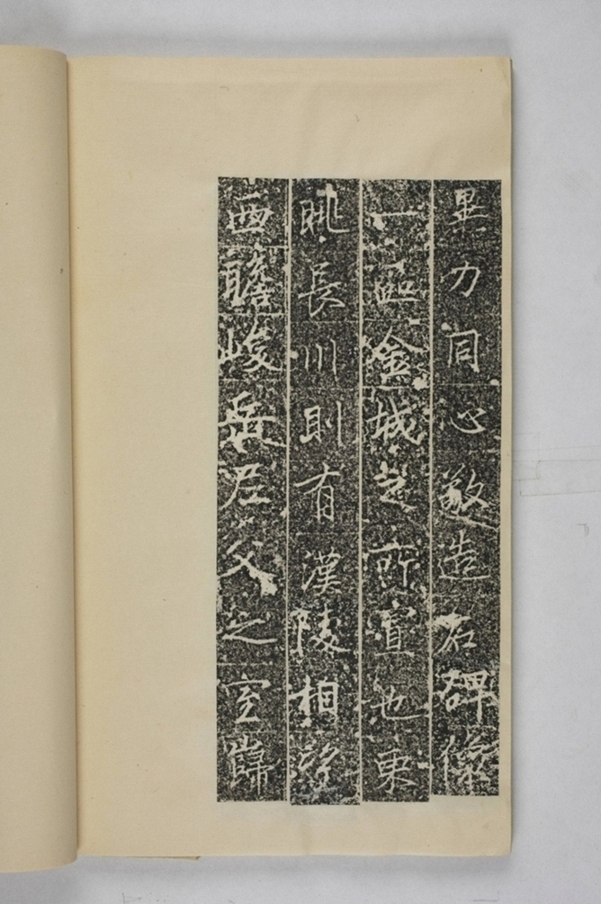 異力同心敬造石碑像
一區金城之所置也東
眺長川則有漢陵相望
西瞻峻岳居父之室歸